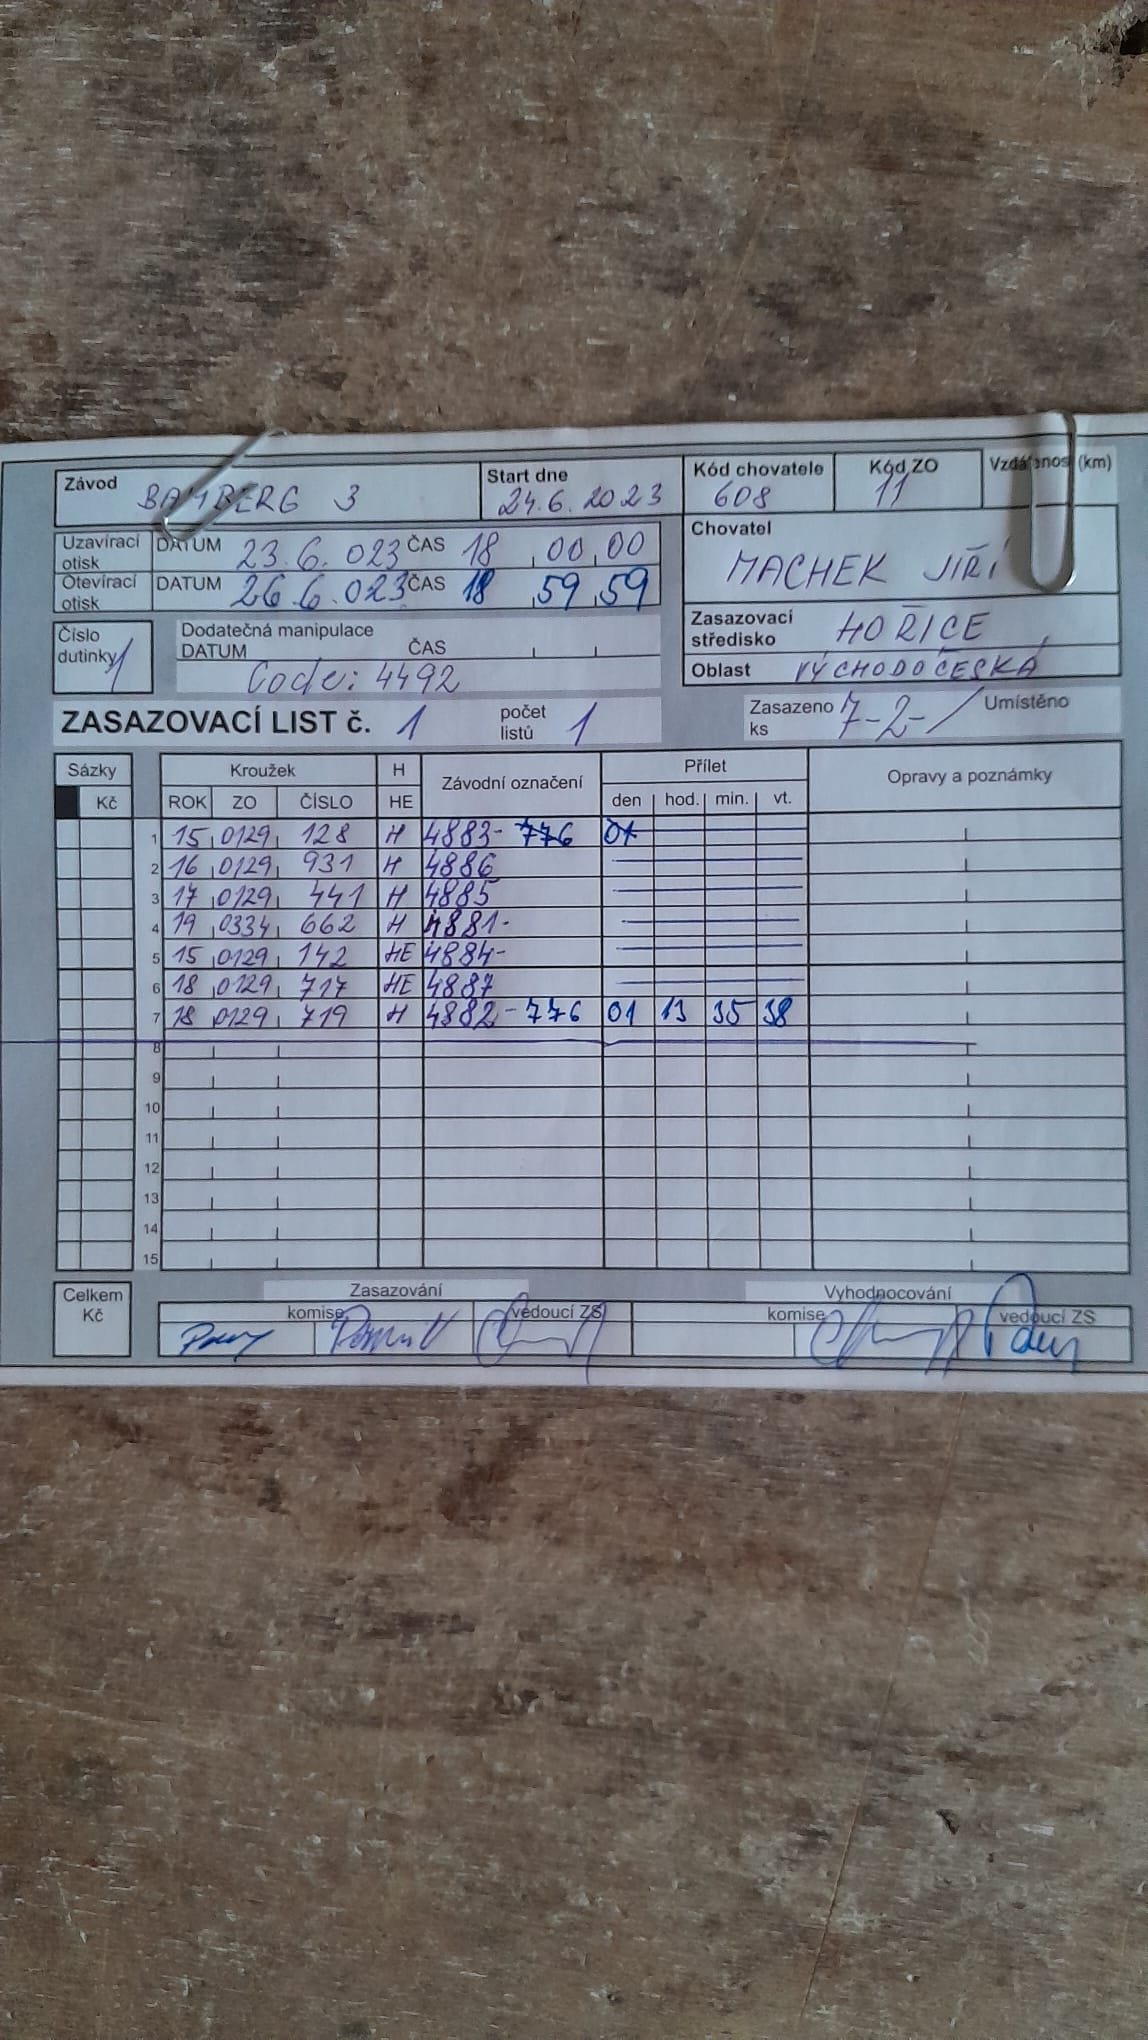 Závod BAMBERG 3 Start dne 24.6.2023 Kód chovatele 608 Kód ZO 11 Vzdálenost (km)
Uzavírací otisk DATUM 23.6.023 ČAS 18 00 00
Otevírací otisk DATUM 26.6.023 ČAS 18 59 59
Chovatel
MACHEK JIŘÍ
Číslo dutinky 1
Dodatečná manipulace
DATUM ČAS
Code: 4492
Zasazovací středisko HOŘICE
Oblast VÝCHODOČESKÁ
ZASAZOVACÍ LIST č. 1 počet listů 1 Zasazeno ks 7-2- Umístěno
Sázky Kroužek H Závodní označení Přílet Opravy a poznámky
Kč ROK ZO ČÍSLO HE den hod. min. vt.
1 15 0129 128 H 4883- 776 01
2 16 0129 931 H 4886
3 17 0129 441 H 4885
4 19 0334 662 H 4881-
5 15 0129 142 HE 4884-
6 18 0129 717 HE 4887
7 18 0129 719 H 4882-776 01 13 35 38
8
9
10
11
12
13
14
15
Celkem Kč Zasazování Vyhodnocování
komise vedoucí ZS komise vedoucí ZS